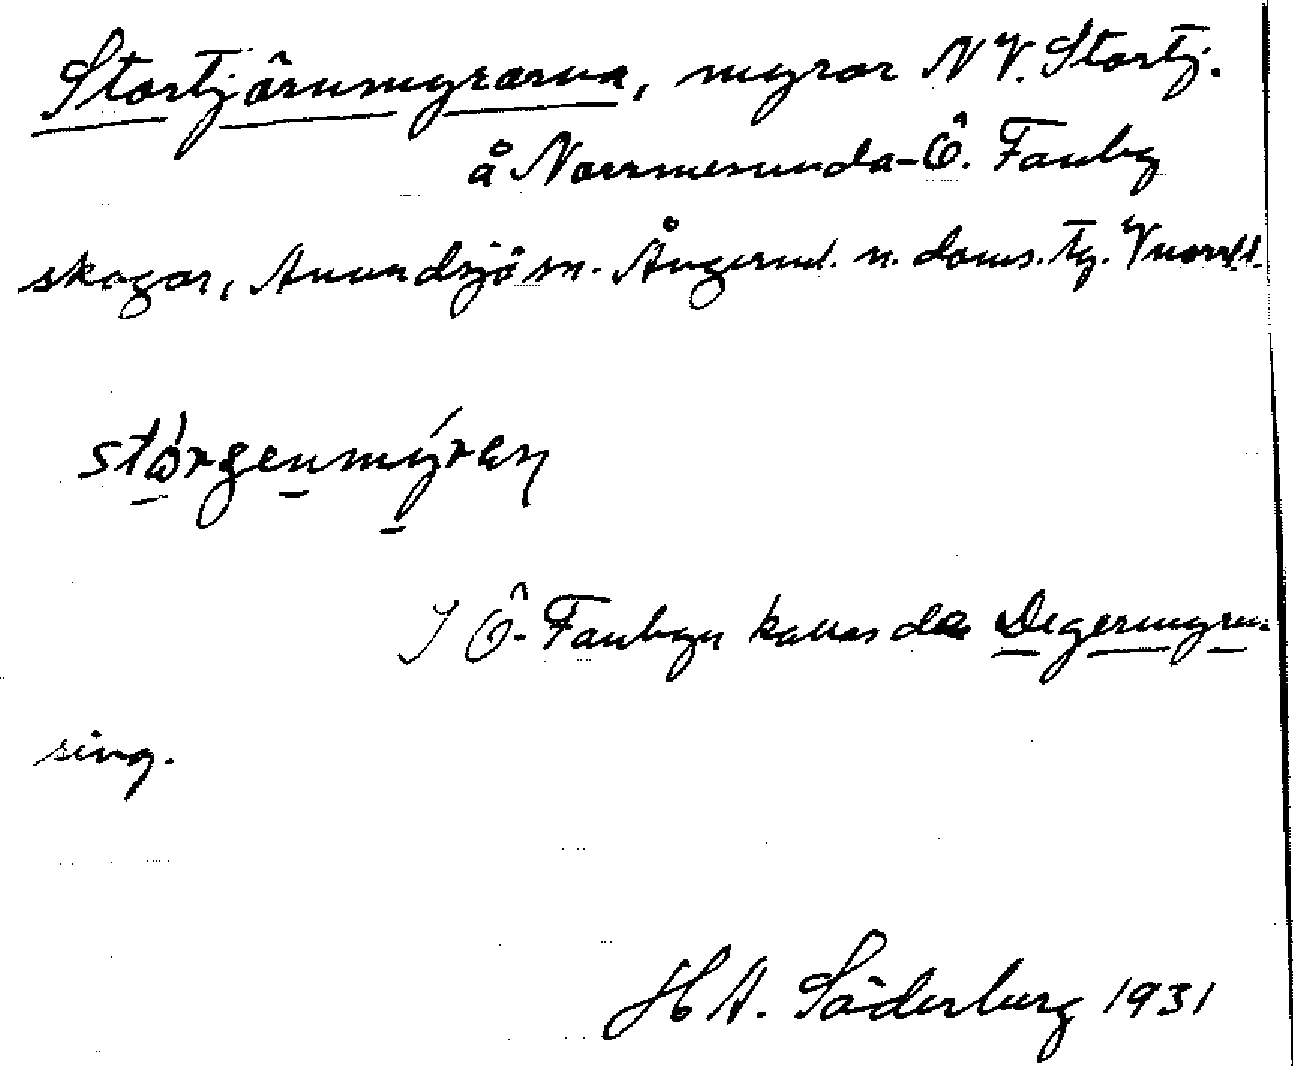 Stortjärnmyrarna, myror NV. Stortj.
å Norrmesunda-Ö. Fanby
skogar, Anundsjö sn. Ångerml. n. doms. tg. Vnorrl l.
störgenmýren
I Ö-Fanbyn kallas de Degermyren
sing.
H A. Söderberg 1931